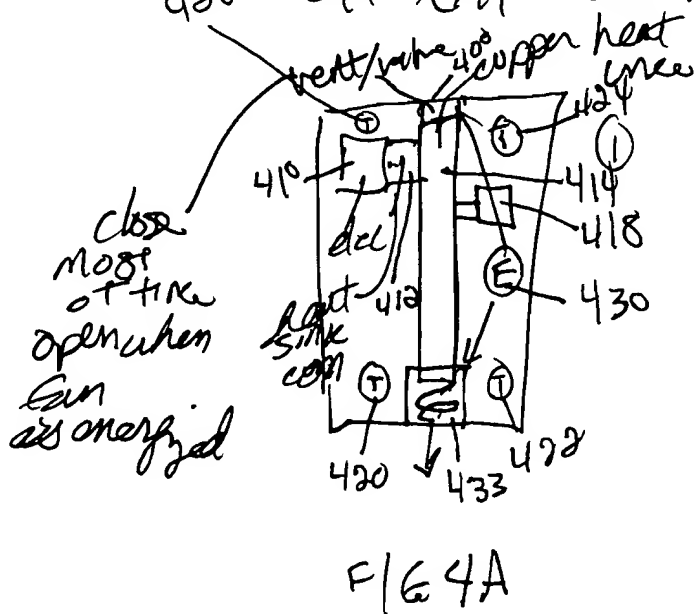 vent/valve 400 copper heat
T
T
424
1
410
414
418
del
close
most
of time
open when
fan
is energized
heat
sink
com
412
E
430
T
T
420
433
422
FIG 4A